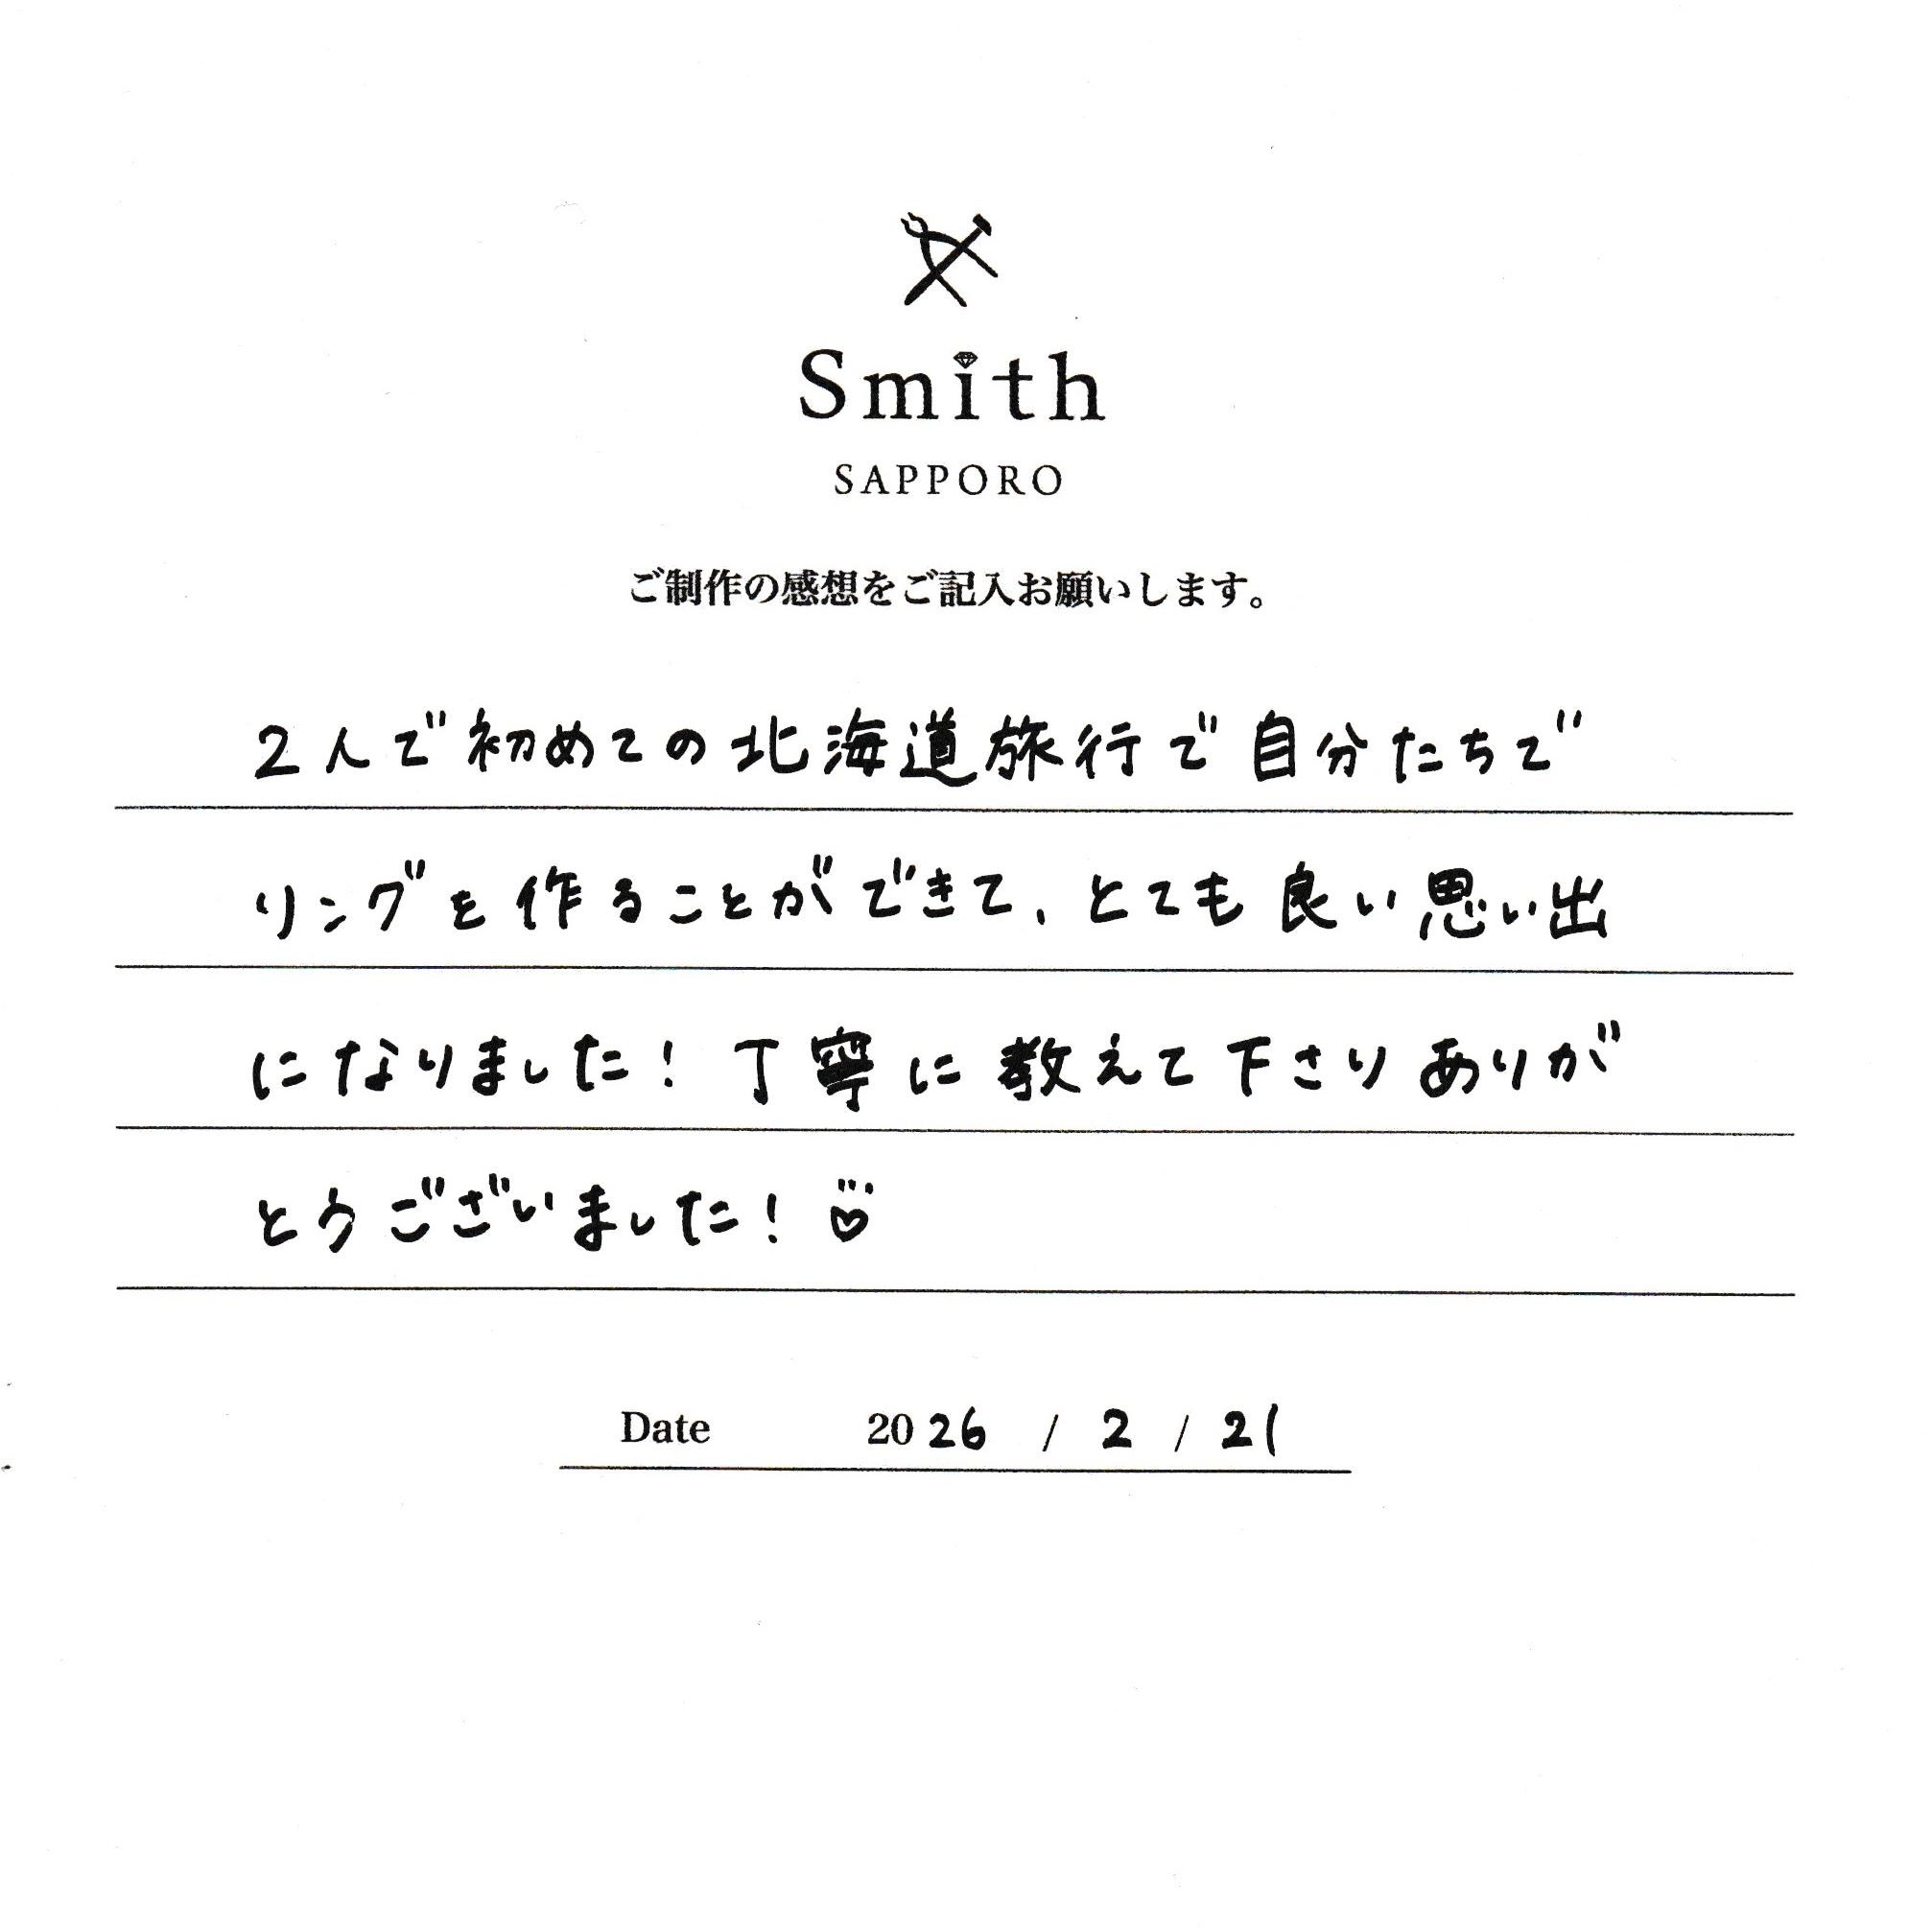 Smith
SAPPORO
ご制作の感想をご記入お願いします。
2人で初めての北海道旅行で自分たちで
リングを作ることができて、とても良い思い出
になりました！丁寧に教えて下さりありが
とうございました！
Date 2026 / 2 / 21